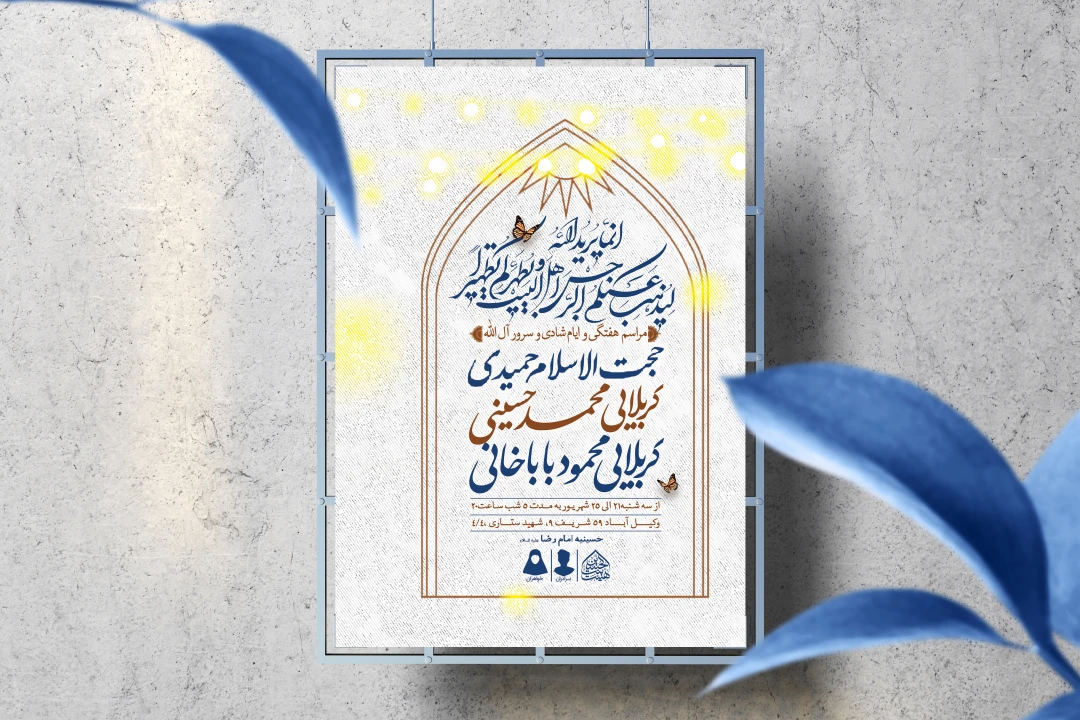 انما یرید الله
لیذهب عنکم الرجس اهل البیت و یطهرکم تطهیرا
مراسم هفتگی و ایام شادی و سرور آل الله
حجت الاسلام حمیدی
کربلایی محمد حسینی
کربلایی محمود باباخانی
از سه شنبه ۲۱ الی ۲۵ شهریور به مدت ۵ شب ساعت ۲۰
وکیل آباد ۵۹ شریف ۹، شهید ستاری ۴/۴
حسینیه امام رضا علیه السلام
برادران
خواهران